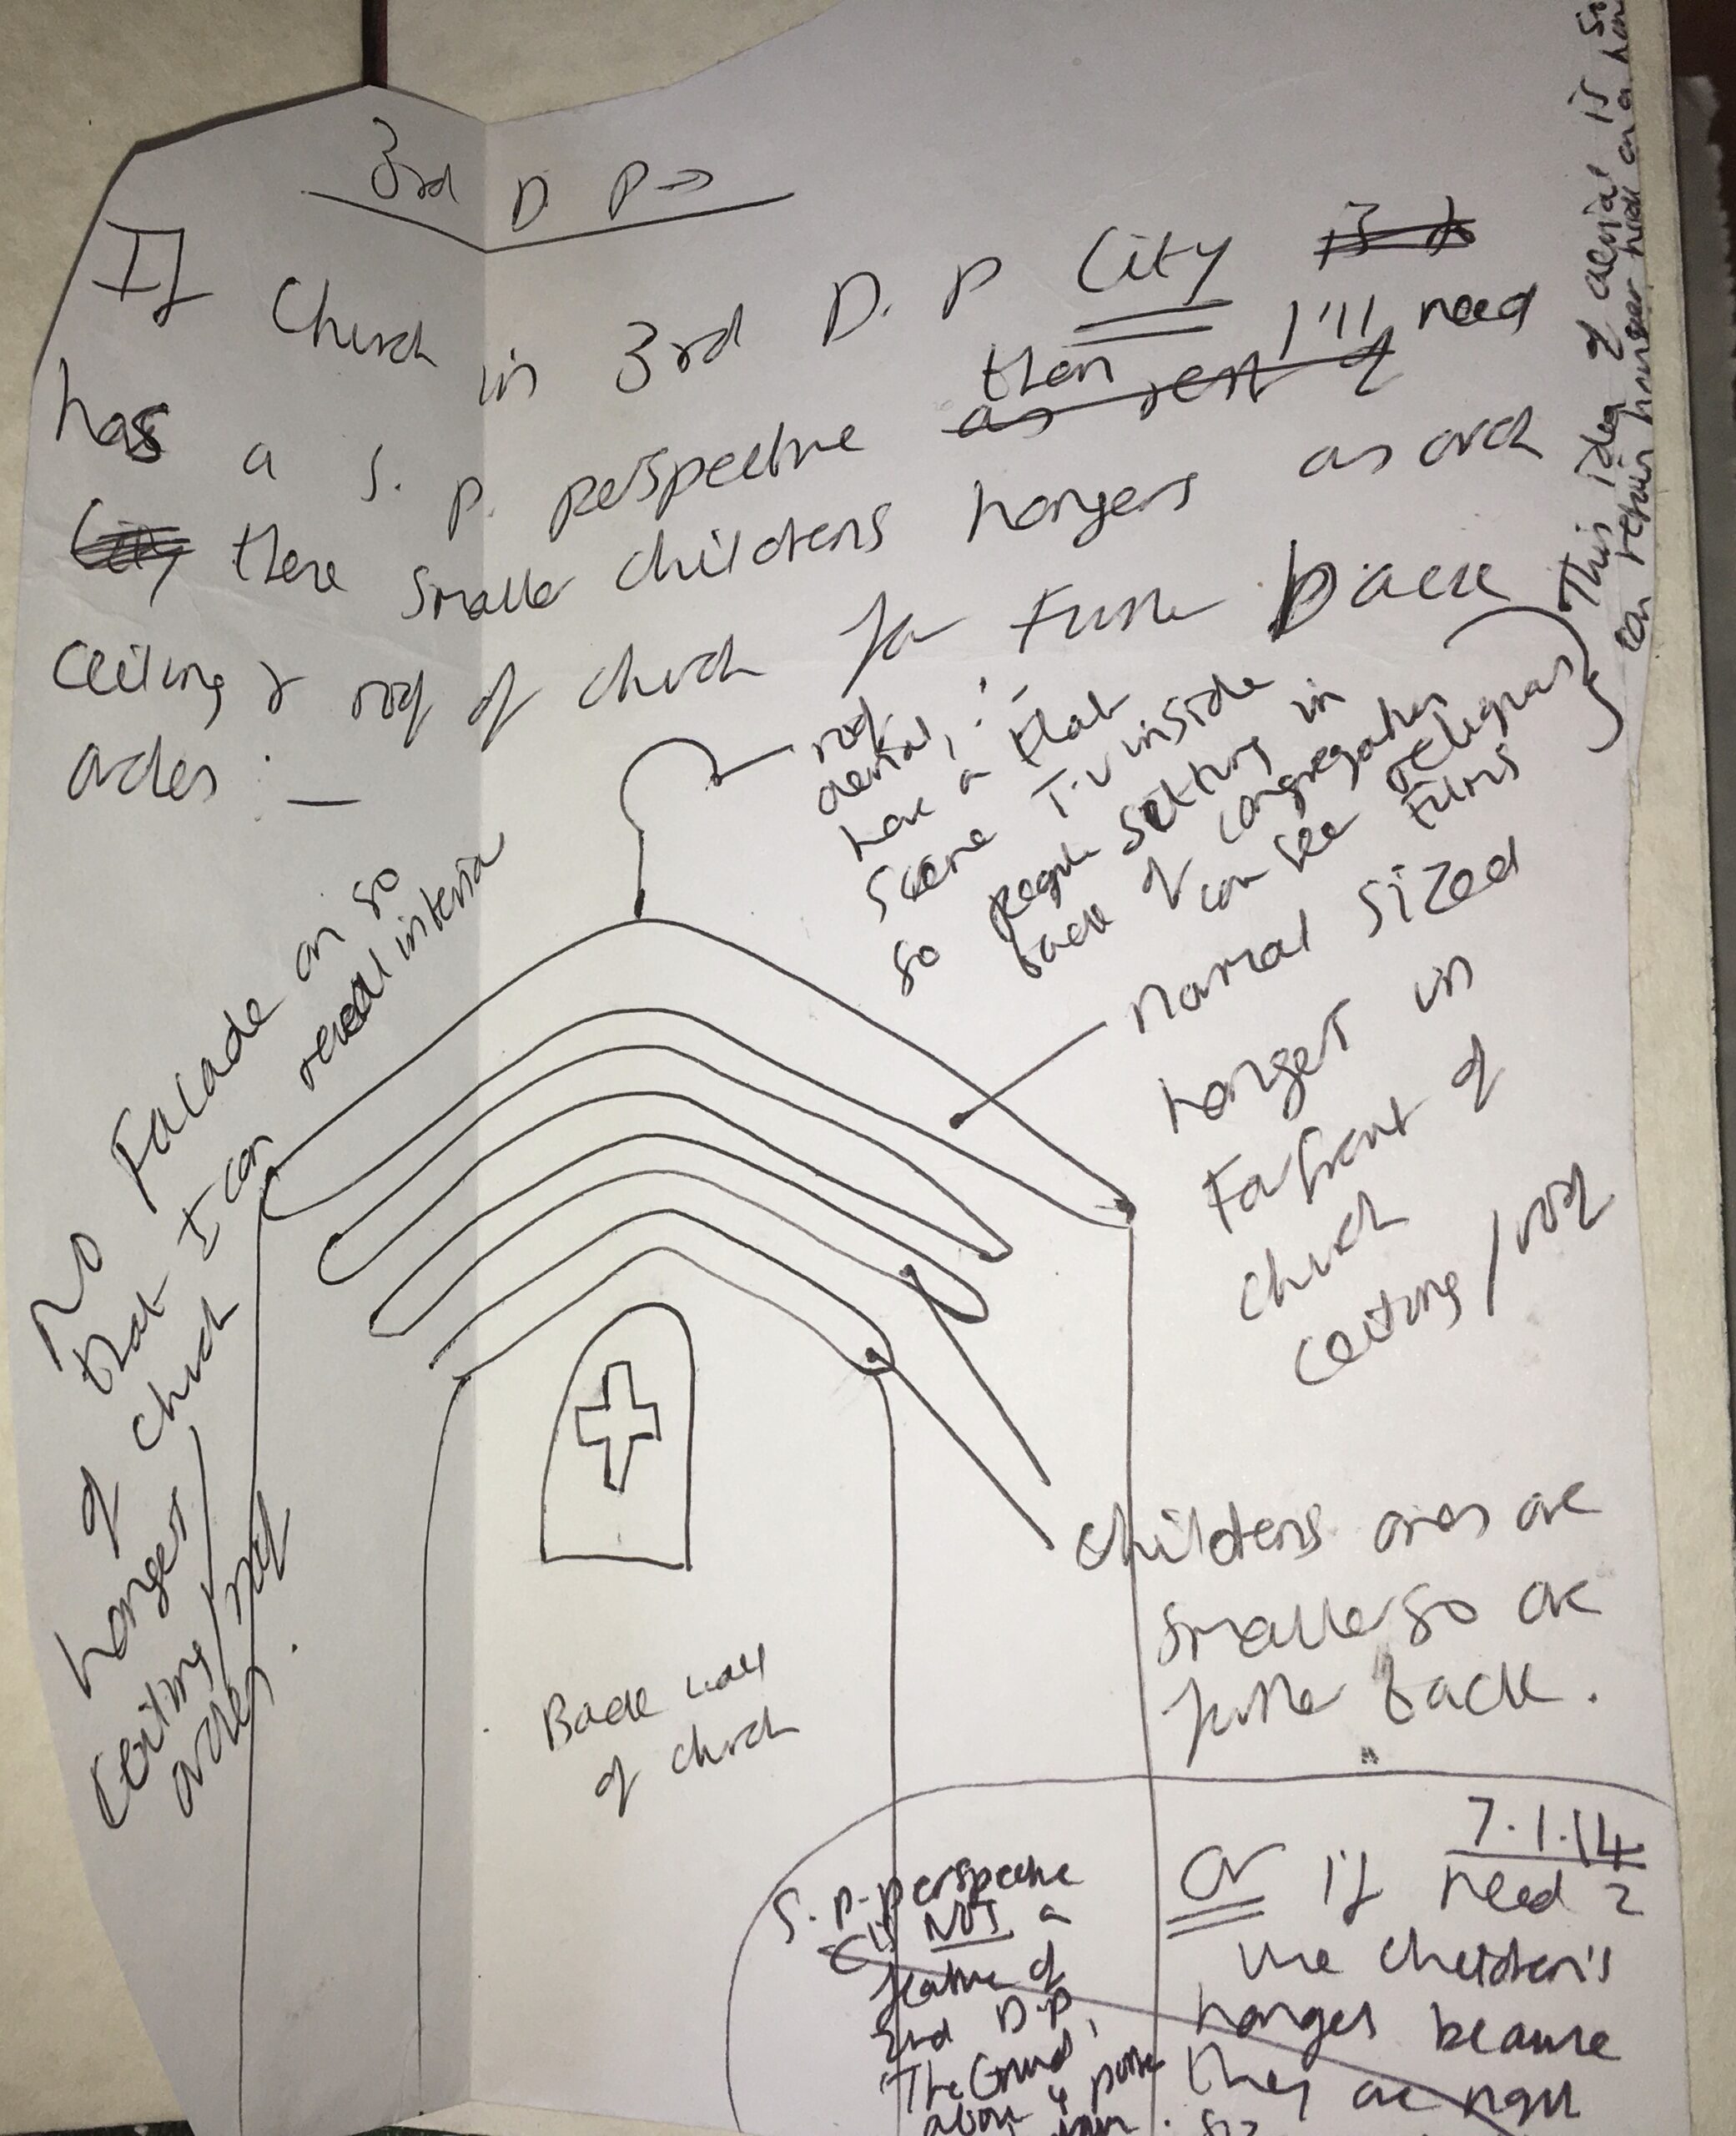 3rd D. P →
If Church in 3rd D. P City
has a S. P. perspective then I'll need
there smaller childrens hangers as arch
ceiling & roof of church for further back
arches : —
roof
aerial, : -
have a flat
screne T.V inside
so people sitting in
back of congregation
can see religious
films
This idea of aerial is
can retain hanger hook on a
No Facade on so
that I can reveal interia
of church
hangers
ceiling/roof
arches.
normal sized
hanger in
for front of
church
ceiling/roof
childrens ones are
smaller so are
further back.
Back wall
of church
S. P. perspective
is NOT a
feature of
2nd D.P
'The Grand,
above &
7.1.14
Or if need 2
use children's
hangers because
they are right